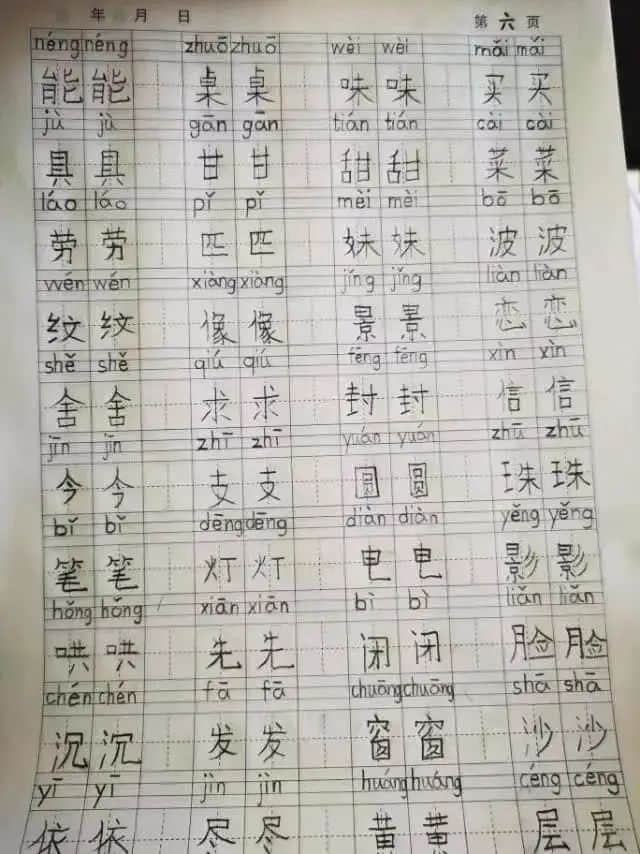 年 月 日 第 六 页
néng néng zhuō zhuō wèi wèi mǎi mǎi
能 能 桌 桌 味 味 买 买
jù jù gān gān tián tián cài cài
具 具 甘 甘 甜 甜 菜 菜
láo láo pǐ pǐ mèi mèi bō bō
劳 劳 匹 匹 妹 妹 波 波
wén wén xiàng xiàng jǐng jǐng liàn liàn
纹 纹 像 像 景 景 恋 恋
shě shě qiú qiú fēng fēng xìn xìn
舍 舍 求 求 封 封 信 信
jīn jīn zhī zhī yuán yuán zhū zhū
今 今 支 支 圆 圆 珠 珠
bǐ bǐ dēng dēng diàn diàn yěng yěng
笔 笔 灯 灯 电 电 影 影
hǒng hǒng xiān xiān bì bì liǎn liǎn
哄 哄 先 先 闭 闭 脸 脸
chén chén fā fā chuāng chuāng shā shā
沉 沉 发 发 窗 窗 沙 沙
yī yī jìn jìn huáng huáng céng céng
依 依 尽 尽 黄 黄 层 层